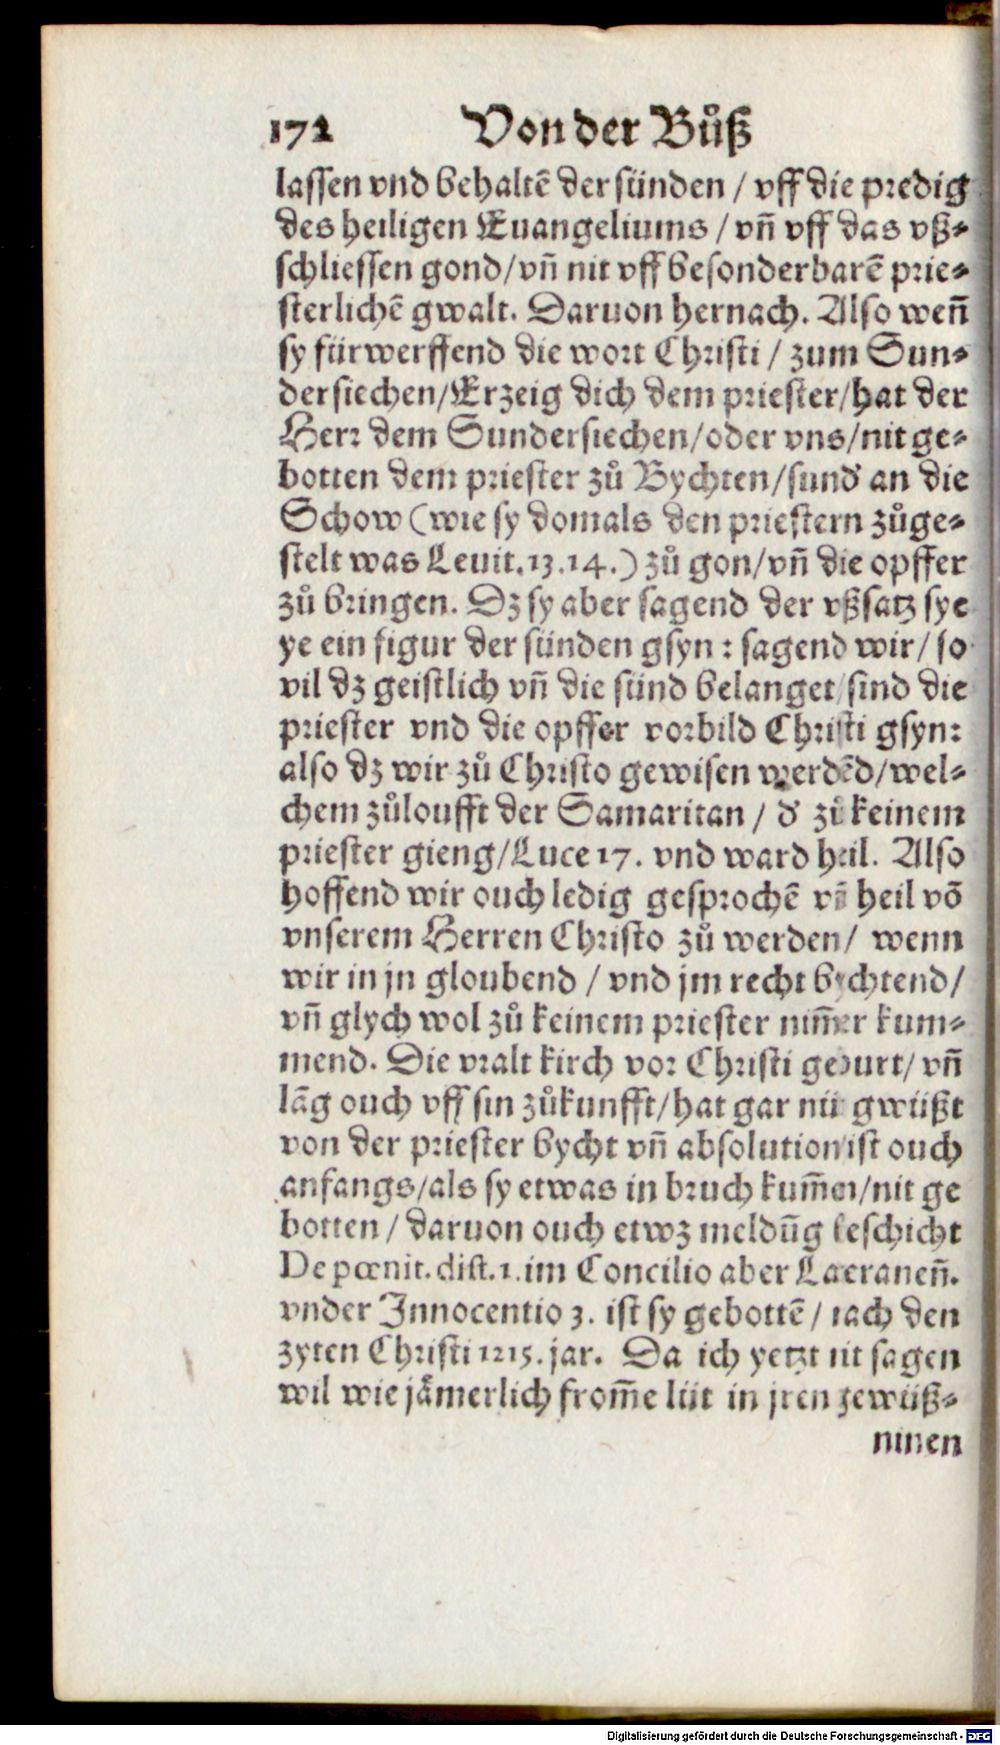 172 Von der Bůß
lassen vnd behaltē der sünden / vff die predig
des heiligen Euangeliums / vñ vff das vß⸗
schliessen gond/vñ nit vff besonderbarē prie⸗
sterlichē gwalt. Daruon hernach. Also weñ
sy fürwerffend die wort Christi / zum Sun⸗
dersiechen/Erzeig dich dem priester/hat der
Herr dem Sundersiechen/oder vns/nit ge⸗
botten dem priester zů Bychten/sund' an die
Schow (wie sy domals den priestern zůge⸗
stelt was Leuit.13.14.) zů gon/vñ die opffer
zů bringen. Dz sy aber sagend der vßsatz sye
ye ein figur der sünden gsyn: sagend wir/ so
vil dz geistlich vñ die sünd belanget/sind die
priester vnd die opffer vorbild Christi gsyn:
also dz wir zů Christo gewisen werdēd/wel⸗
chem zůloufft der Samaritan / d' zů keinem
priester gieng/Luce 17. vnd ward heil. Also
hoffend wir ouch ledig gesprochē vñ heil vō
vnserem Herren Christo zů werden/ wenn
wir in jn gloubend / vnd jm recht bychtend/
vñ glych wol zů keinem priester nim̃er kum⸗
mend. Die vralt kirch vor Christi geburt/ vñ
lāg ouch vff sin zůkunfft/hat gar nüt gwüßt
von der priester bycht vñ absolution/ist ouch
anfangs/als sy etwas in bruch kum̃en/nit ge
botten / daruon ouch etwz meldũg beschicht
De pœnit. dist. 1. im Concilio aber Lateraneñ.
vnder Innocentio 3. ist sy gebottē / nach den
zyten Christi 1215. jar. Da ich yetzt nit sagen
wil wie jämerlich from̃e lüt in jren gewüß⸗
ninen
Digitalisierung gefördert durch die Deutsche Forschungsgemeinschaft - DFG